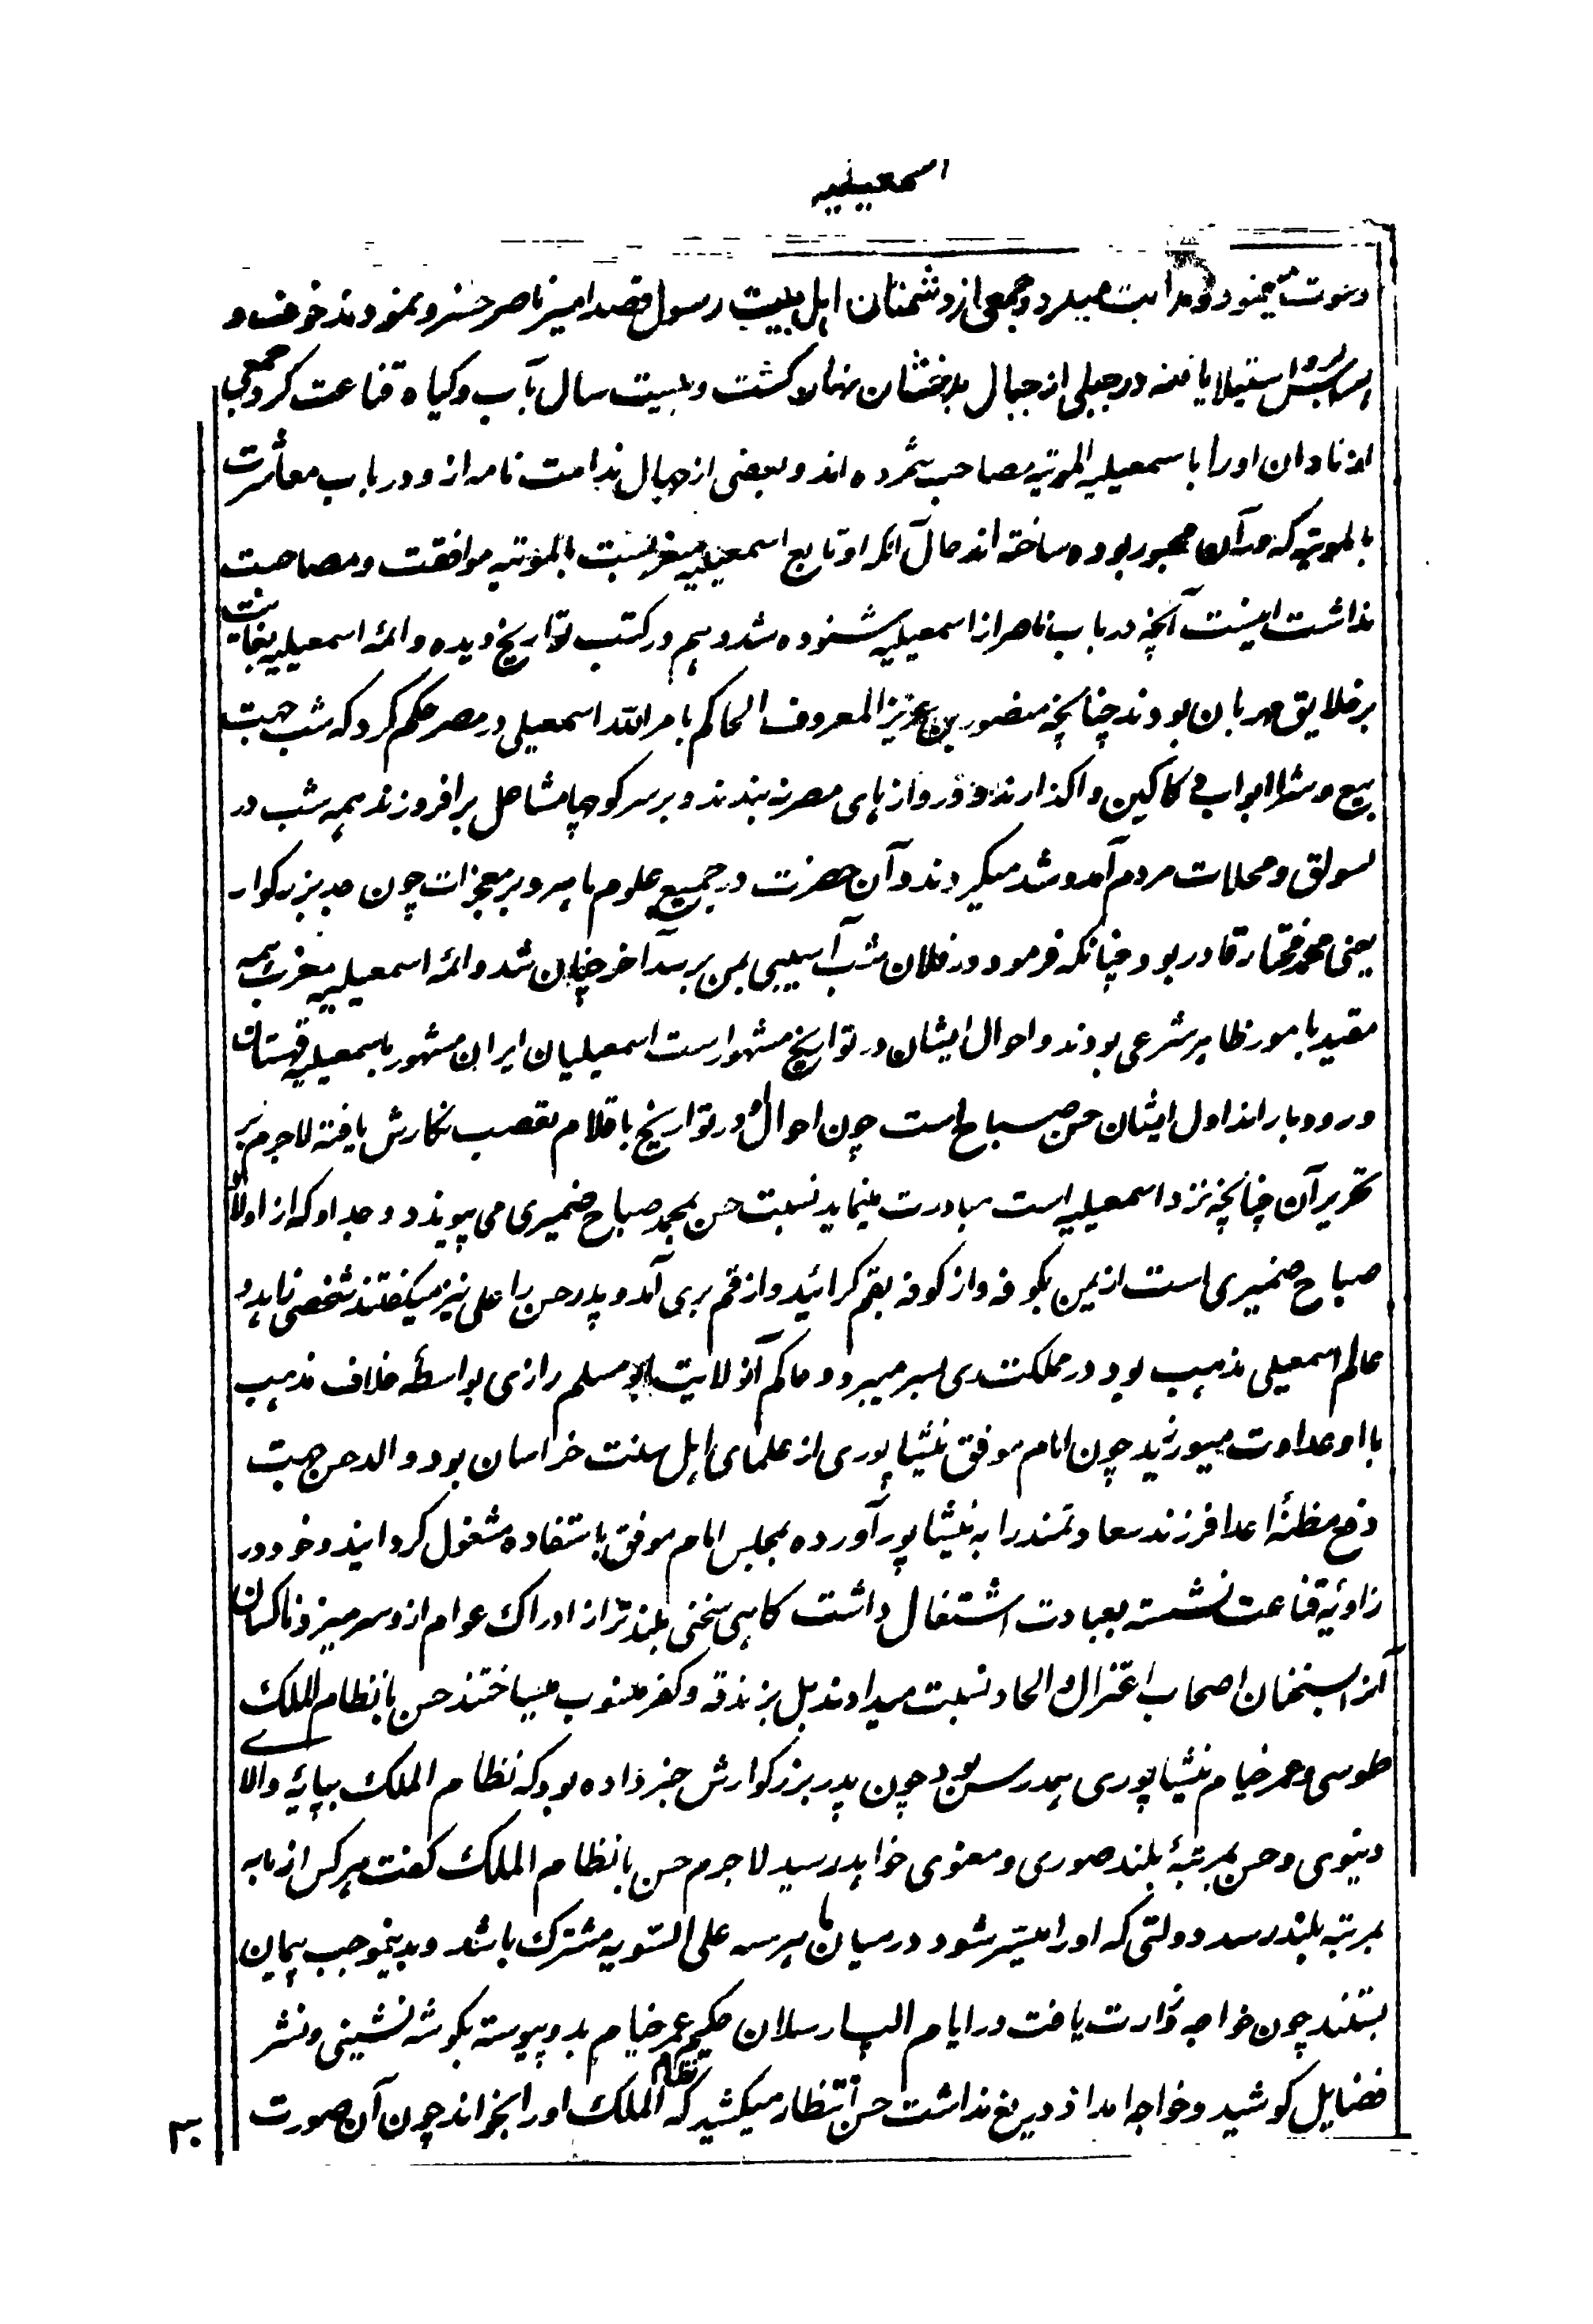 اسمعیلیه
دعوت مینمود و هدایت میکرد و جمعی از دشمنان اهل بیت رسول قصد امیر ناصر خسرو نمودند خوف و
هراس برو استیلا یافته در جبلی از جبال بدخشان نهان کشت و بیست سال بآب و کیاه قناعت کرد جمعی
از نادان او را با سمعیلیه الموتیه مصاحب شمرده اند و بعضی از جهال ندامت نامه از و در باب معاشرت
بالموتیه که در آن مجبور بوده ساخته اند حال آنکه او تابع اسمعیلیه مغربست بالموتیه موافقت و مصاحبت
نداشت اینست آنچه در باب ناصر از اسمعیلیه شنوده شد و هم در کتب تواریخ دیده و ائمه اسمعیلیه بغایت
بر خلایق مهربان بودند چنانچه منصور بن عزیز المعروف الحاکم بامر الله اسمعیلی در مصر حکم کرد که شب جهت
بیع و شرا ابواب دکاکین واکذارند و دروازهای مصر نه بندند و بر سر کوچها مشاعل بر افروزند همه شب در
اسواق و محلات مردم آمد و شد میکردند و آن حضرت در جمیع علوم ماهر و بر معجزات چون جد بزرکوار
یعنی محمد مختار قادر بود چنانکه فرمود در فلان شب آسیبی بمن برسد آخر چنان شد و ائمه اسمعیلیه مغرب همه
مقید بامور ظاهر شرعی بودند و احوال ایشان در تواریخ مشهور است اسمعیلیان ایران مشهور باسمعیلیه قهستان
و رودبار اند اول ایشان حسن صباح است چون احوال او در تواریخ باقلام تعصب نکارش یافته لاجرم بر
تحریر آن چنانچه نزد اسمعیلیه است مبادرت مینماید نسبت حسن بمحمد صباح ضمیری می پیوندد و جد او که از اولاد
صباح ضمیری است از یمن بکوفه و از کوفه بقم کرائید و از قم بری آمد و پدر حسن را علی نیز میکفتند شخصی زاهد و
عالم اسمعیلی مذهب بود در مملکت ری بسر میبرد و حاکم آنولایت ابو مسلم رازی بواسطهٔ خلاف مذهب
با او عداوت میورزید چون امام موفق نیشاپوری از علمای اهل سنت خراسان بود والد حسن جهت
دفع مظنهٔ اعدا فرزند سعادتمند را به نیشاپور آورده بمجلس امام موفق باستفاده مشغول کردانید و خود در
زاویهٔ قناعت نشسته بعبادت اشتغال داشت کاهی سخنی بلندتر از ادراک عوام ازو سر میزد ناکسان
آنرا بسخنان اصحاب اعتزال و الحاد نسبت میدادند بل بزندقه و کفر منسوب میساختند حسن با نظام الملک
طوسی و عمر خیام نیشاپوری همدرس بودی چون پدر بزرکوارش خبر داده بود که نظام الملک بپایهٔ والا
دنیوی و حسن بمرتبهٔ بلند صوری و معنوی خواهد رسید لاجرم حسن با نظام الملک کفت هر کس از ما به
بمرتبه بلند رسد دولتی که او را میسر شود در میان ما هر سه علی السویه مشترک باشد و بدینموجب پیمان
بستند چون خواجه وزارت یافت در ایام الپ ارسلان حکیم عمر خیام بدو پیوسته بکوشه نشینی و نشر
فضایل کوشید و خواجه امداد ازو دریغ نداشت حسن انتظار میکشید که نظام الملک او را بخواند چون آن صورت